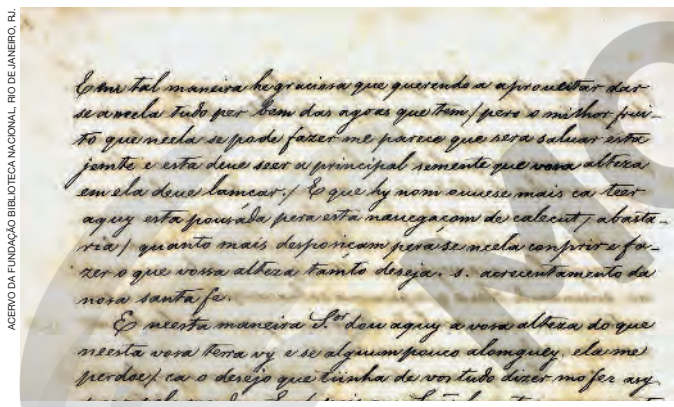 ACERVO DA FUNDAÇÃO BIBLIOTECA NACIONAL, RIO DE JANEIRO, RJ.
E em tal maneira he graciosa que querendo a aproueitar dar
se a neela tudo per bem das agoas que tem / pero o milhor frui_
to que neela se pode fazer me parece que sera saluar esta
jemte e esta deue seer a principal semente que vosa alteza
em ela deue lamcar. / E que hy nom ouuese mais ca teer
aquy esta pousada pera esta nauegaçom de calecut / abasta_
ria / quanto mais desposiçam pera se neela conprir e fa_
zer o que vossa alteza tamto deseja. s. acrecentamento da
nosa santa fe.
E neesta maneira S.or dou aquy a vosa alteza do que
neesta vosa terra vy e se alguum pouco alomguey, ela me
perdoe / ca o desejo que tiinha de vos tudo dizer mo fez asy